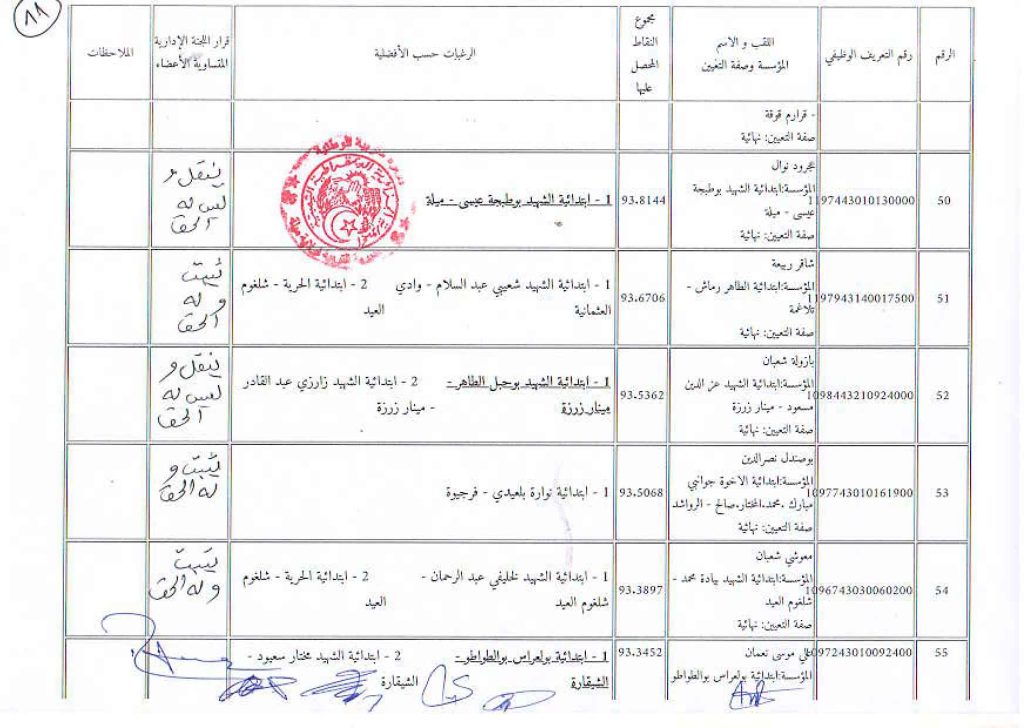 11
الرقم
رقم التعريف الوظيفي
اللقب و الاسم
المؤسسة وصفة التعيين
مجموع
النقاط
المحصل
عليها
الرغبات حسب الأفضلية
قرار اللجنة الإدارية
المتساوية الأعضاء
الملاحظات
- قرارم قوقة
صفة التعيين: نهائية
50
1197443010130000
عجرود نوال
المؤسسة:ابتدائية الشهيد بوطبجة
عيسى - ميلة
صفة التعيين: نهائية
93.8144
1 - ابتدائية الشهيد بوطبجة عيسى - ميلة
ينقل و
ليس له
الحق
51
1197943140017500
شاقر ربيعة
المؤسسة:ابتدائية الطاهر رماش -
تلاغمة
صفة التعيين: نهائية
93.6706
1 - ابتدائية الشهيد شعيبي عبد السلام - وادي
العثمانية
2 - ابتدائية الحرية - شلغوم
العيد
يثبت
و له
الحق
52
1098443210924000
بازولة شعبان
المؤسسة:ابتدائية الشهيد عز الدين
مسعود - مينار زرزة
صفة التعيين: نهائية
93.5362
1 - ابتدائية الشهيد بوحبل الطاهر-
مينار زرزة
2 - ابتدائية الشهيد زارزي عبد القادر
- مينار زرزة
ينقل و
ليس له
الحق
53
1097743010161900
بوصندل نصرالدين
المؤسسة:ابتدائية الاخوة جوانبي
مبارك .محمد.المختار.صالح - الرواشد
صفة التعيين: نهائية
93.5068
1 - ابتدائية نوارة بلعيدي - فرجيوة
يثبت و
له الحق
54
1096743030060200
معوشي شعبان
المؤسسة:ابتدائية الشهيد بيادة محمد -
شلغوم العيد
صفة التعيين: نهائية
93.3897
1 - ابتدائية الشهيد لخليفي عبد الرحمان -
شلغوم العيد
2 - ابتدائية الحرية - شلغوم
العيد
يثبت
و له الحق
55
1097243010092400
علي موسى نعمان
المؤسسة:ابتدائية بولعراس بوالطواطو
93.3452
1 - ابتدائية بولعراس بوالطواطو-
الشيقارة
2 - ابتدائية الشهيد مختار سعيود -
الشيقارة